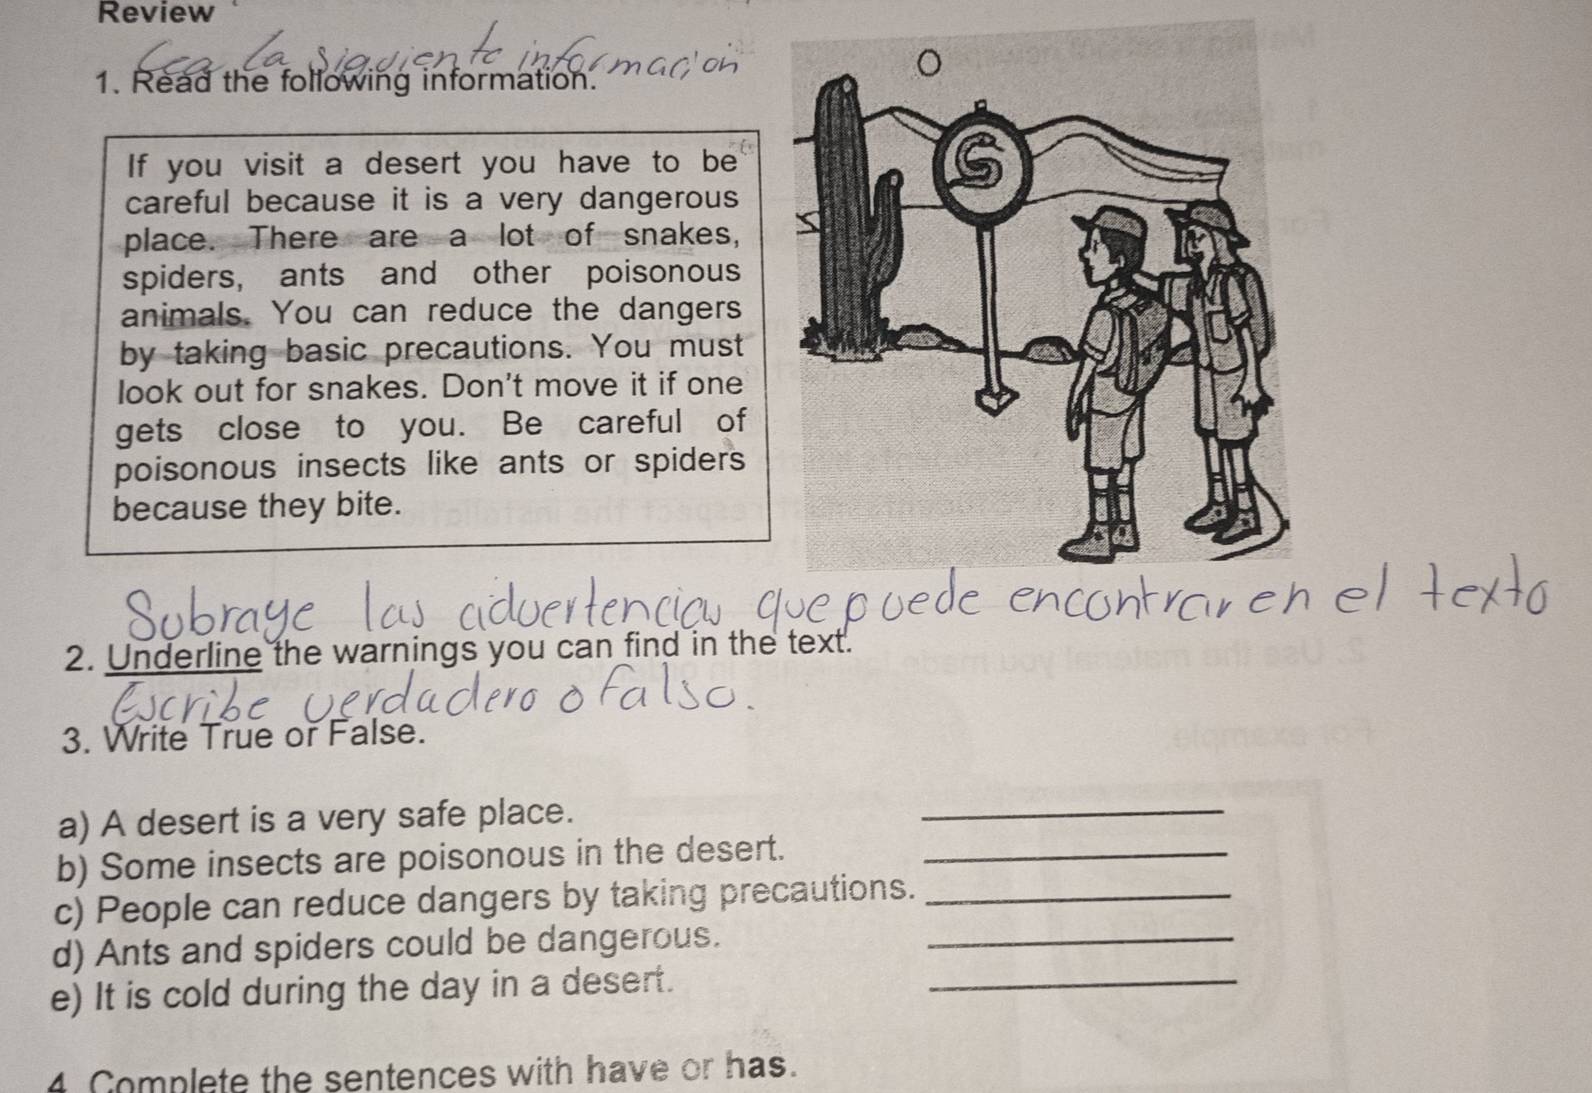 Review
Lea la siguiente información
1. Read the following information.
If you visit a desert you have to be
careful because it is a very dangerous
place. There are a lot of snakes,
spiders, ants and other poisonous
animals. You can reduce the dangers
by taking basic precautions. You must
look out for snakes. Don't move it if one
gets close to you. Be careful of
poisonous insects like ants or spiders
because they bite.
S
Subraye las advertencias que puede encontrar en el texto
2. Underline the warnings you can find in the text.
Escribe verdadero o falso.
3. Write True or False.
a) A desert is a very safe place.
b) Some insects are poisonous in the desert.
c) People can reduce dangers by taking precautions.
d) Ants and spiders could be dangerous.
e) It is cold during the day in a desert.
4. Complete the sentences with have or has.